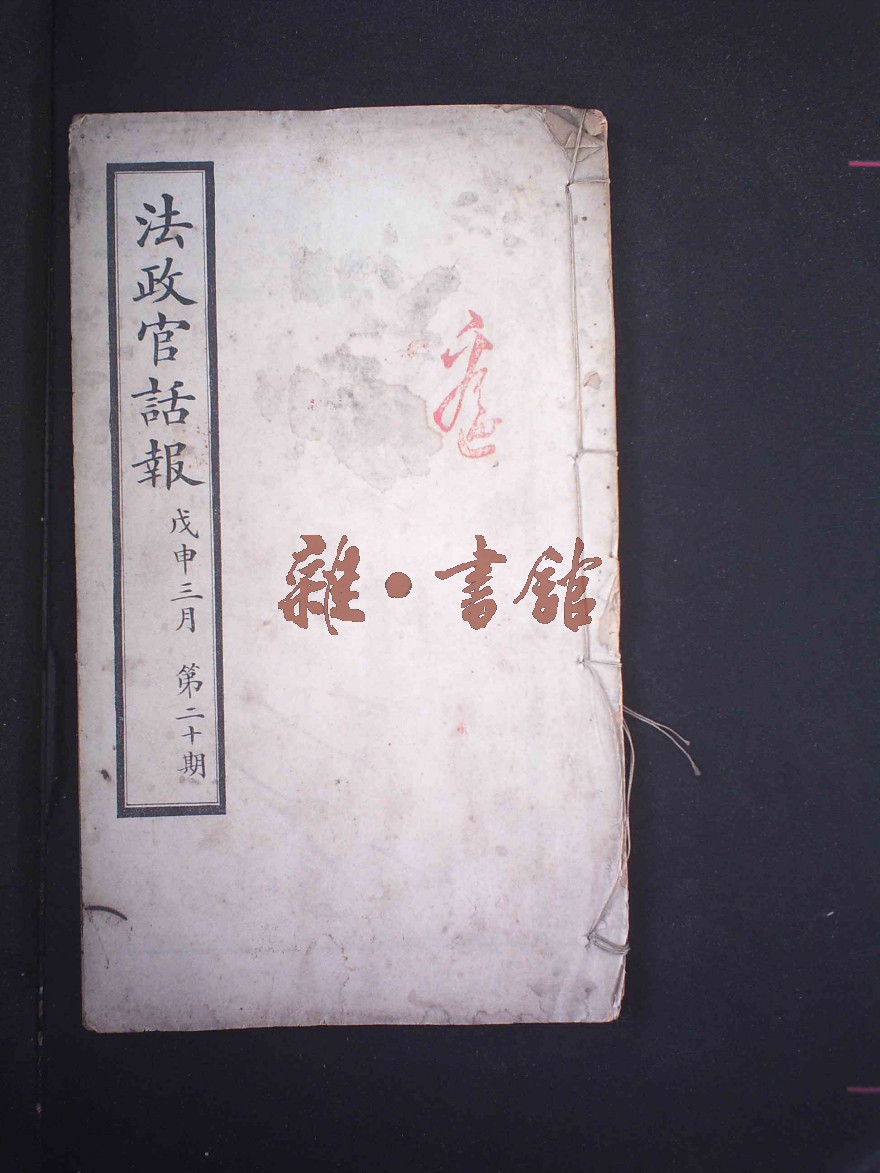 法政官話報
戊申三月 第二十期
雜·書館